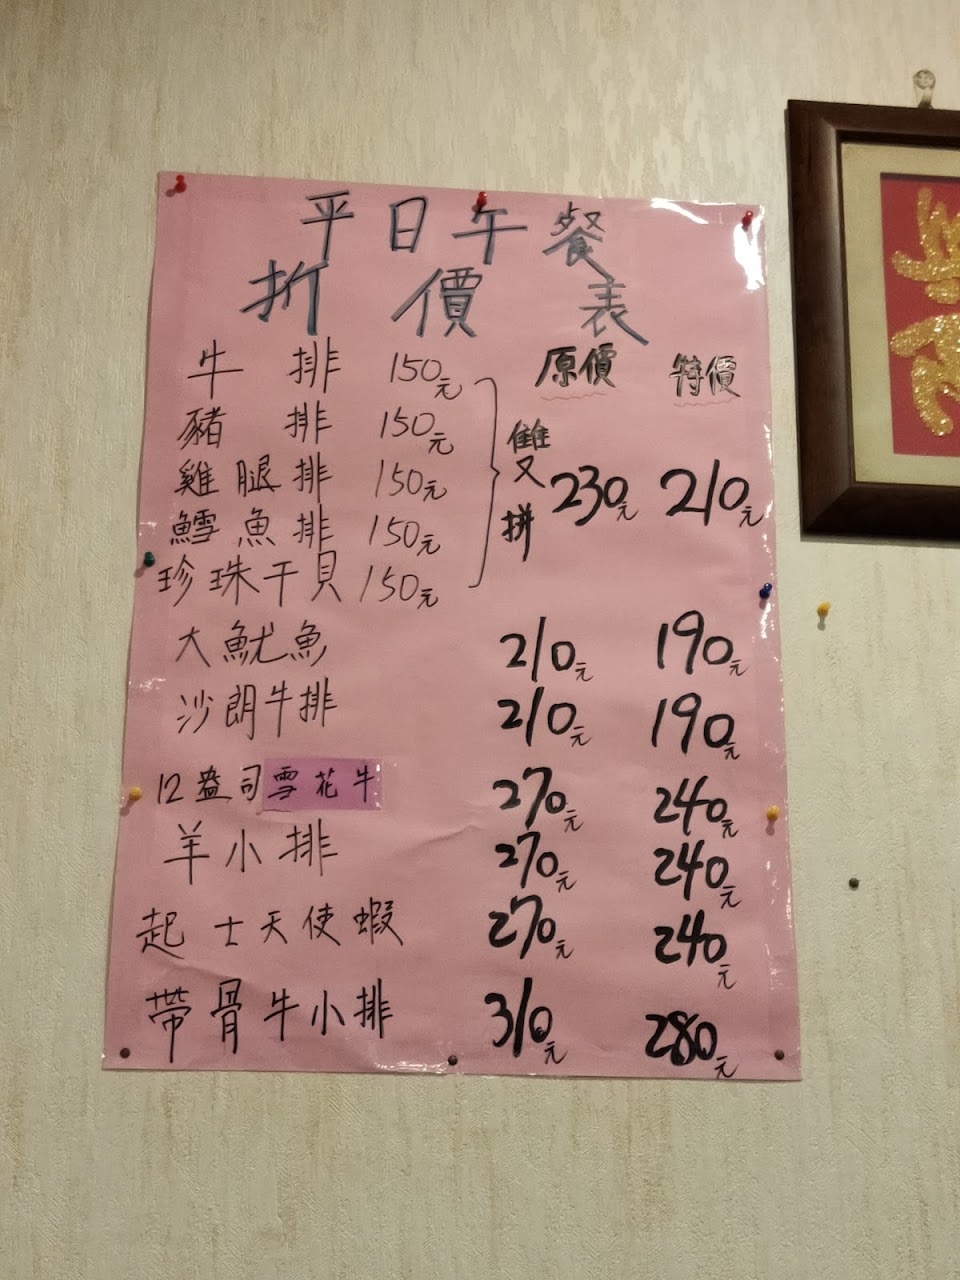 平日午餐
折價表
原價 特價
牛排 150元
豬排 150元
雞腿排 150元
鱈魚排 150元
珍珠干貝 150元
雙拼 230元 210元
大魷魚 210元 190元
沙朗牛排 210元 190元
12盎司雪花牛 270元 240元
羊小排 270元 240元
起士天使蝦 270元 240元
帶骨牛小排 310元 280元